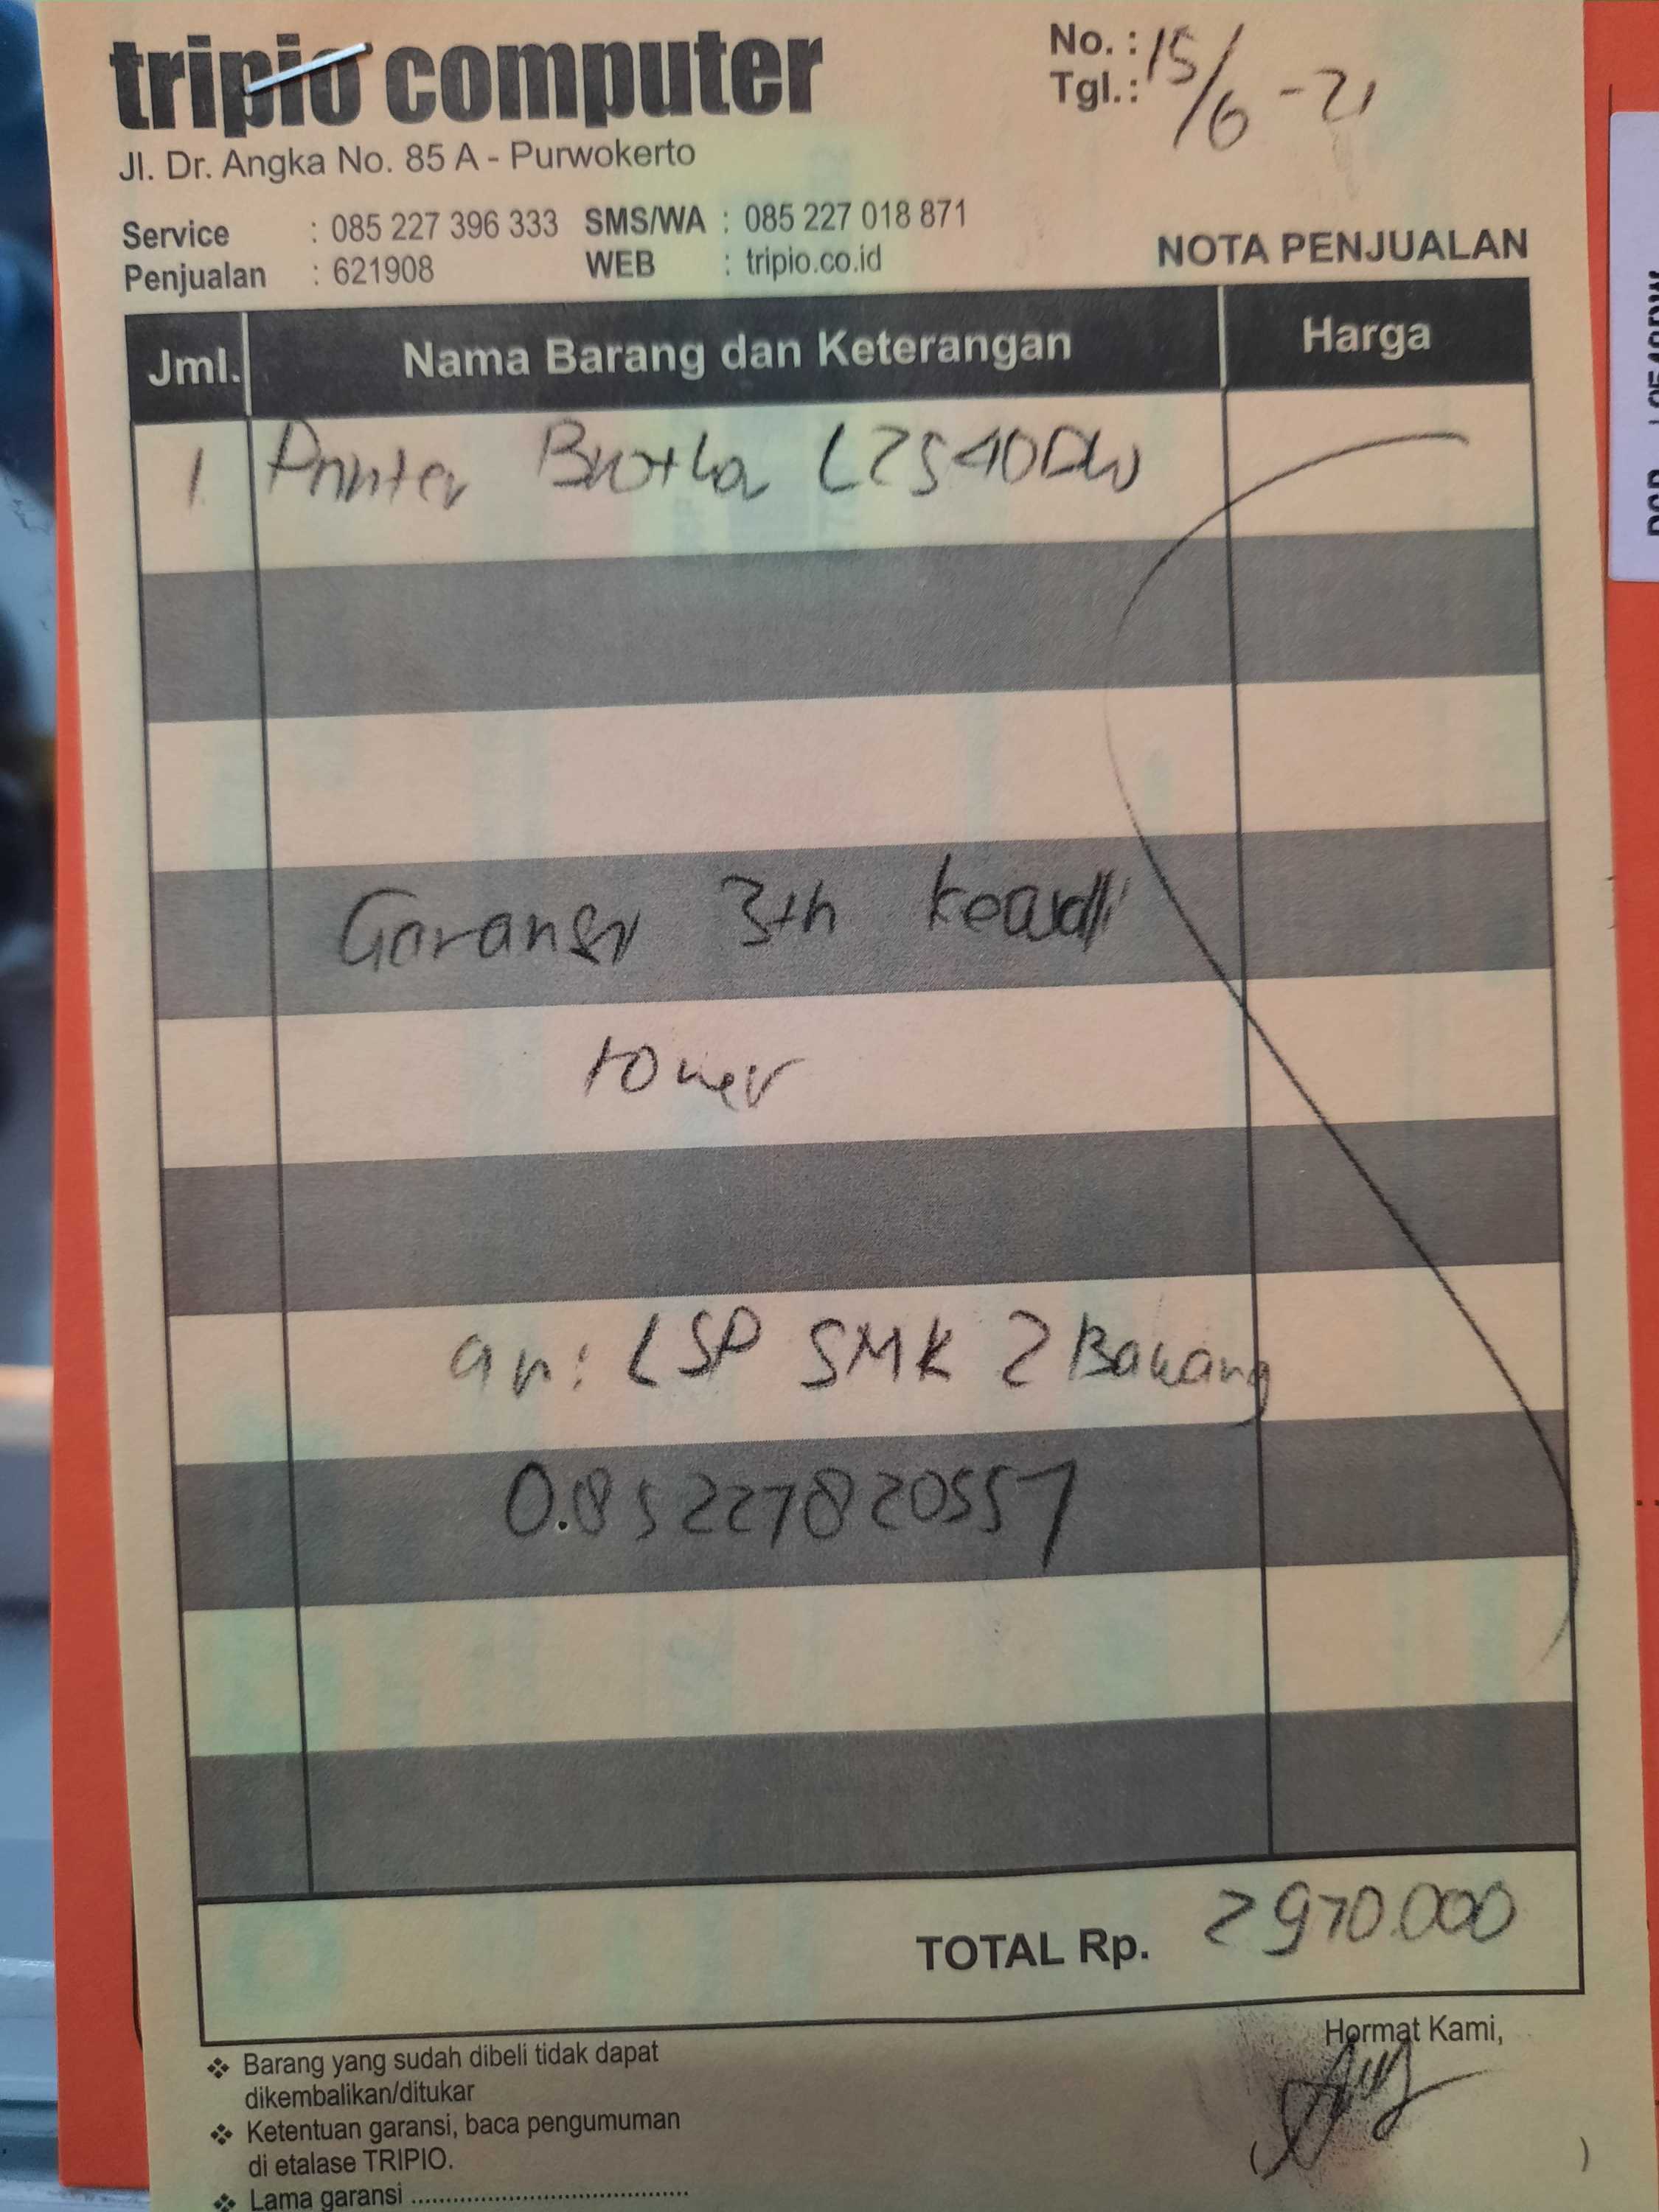 tripio computer
Jl. Dr. Angka No. 85 A - Purwokerto
No. :
Tgl. : 15/6-21
Service : 085 227 396 333 SMS/WA : 085 227 018 871
Penjualan : 621908 WEB : tripio.co.id
NOTA PENJUALAN
Jml. Nama Barang dan Keterangan Harga
1 Printer Brother L2540DW
Garansi 3th
toner
an: LSP SMK 2 Bawang
0.85227820557
TOTAL Rp. 2970.000
Hormat Kami,
❖ Barang yang sudah dibeli tidak dapat
dikembalikan/ditukar
❖ Ketentuan garansi, baca pengumuman
di etalase TRIPIO.
❖ Lama garansi ........................................